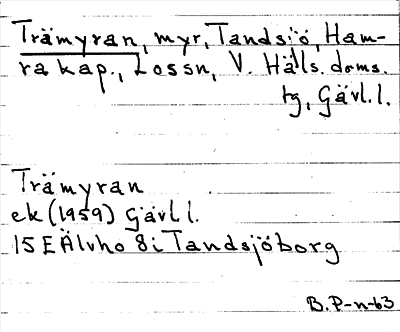 Trämyran, myr, Tandsjö, Ham-
ra kap., Lossn, V. Häls. doms.
tg, Gävl. l.
Trämyran
ek (1959) Gävl l.
15 E Älvho 8 i Tandsjöborg
B.P-n-63